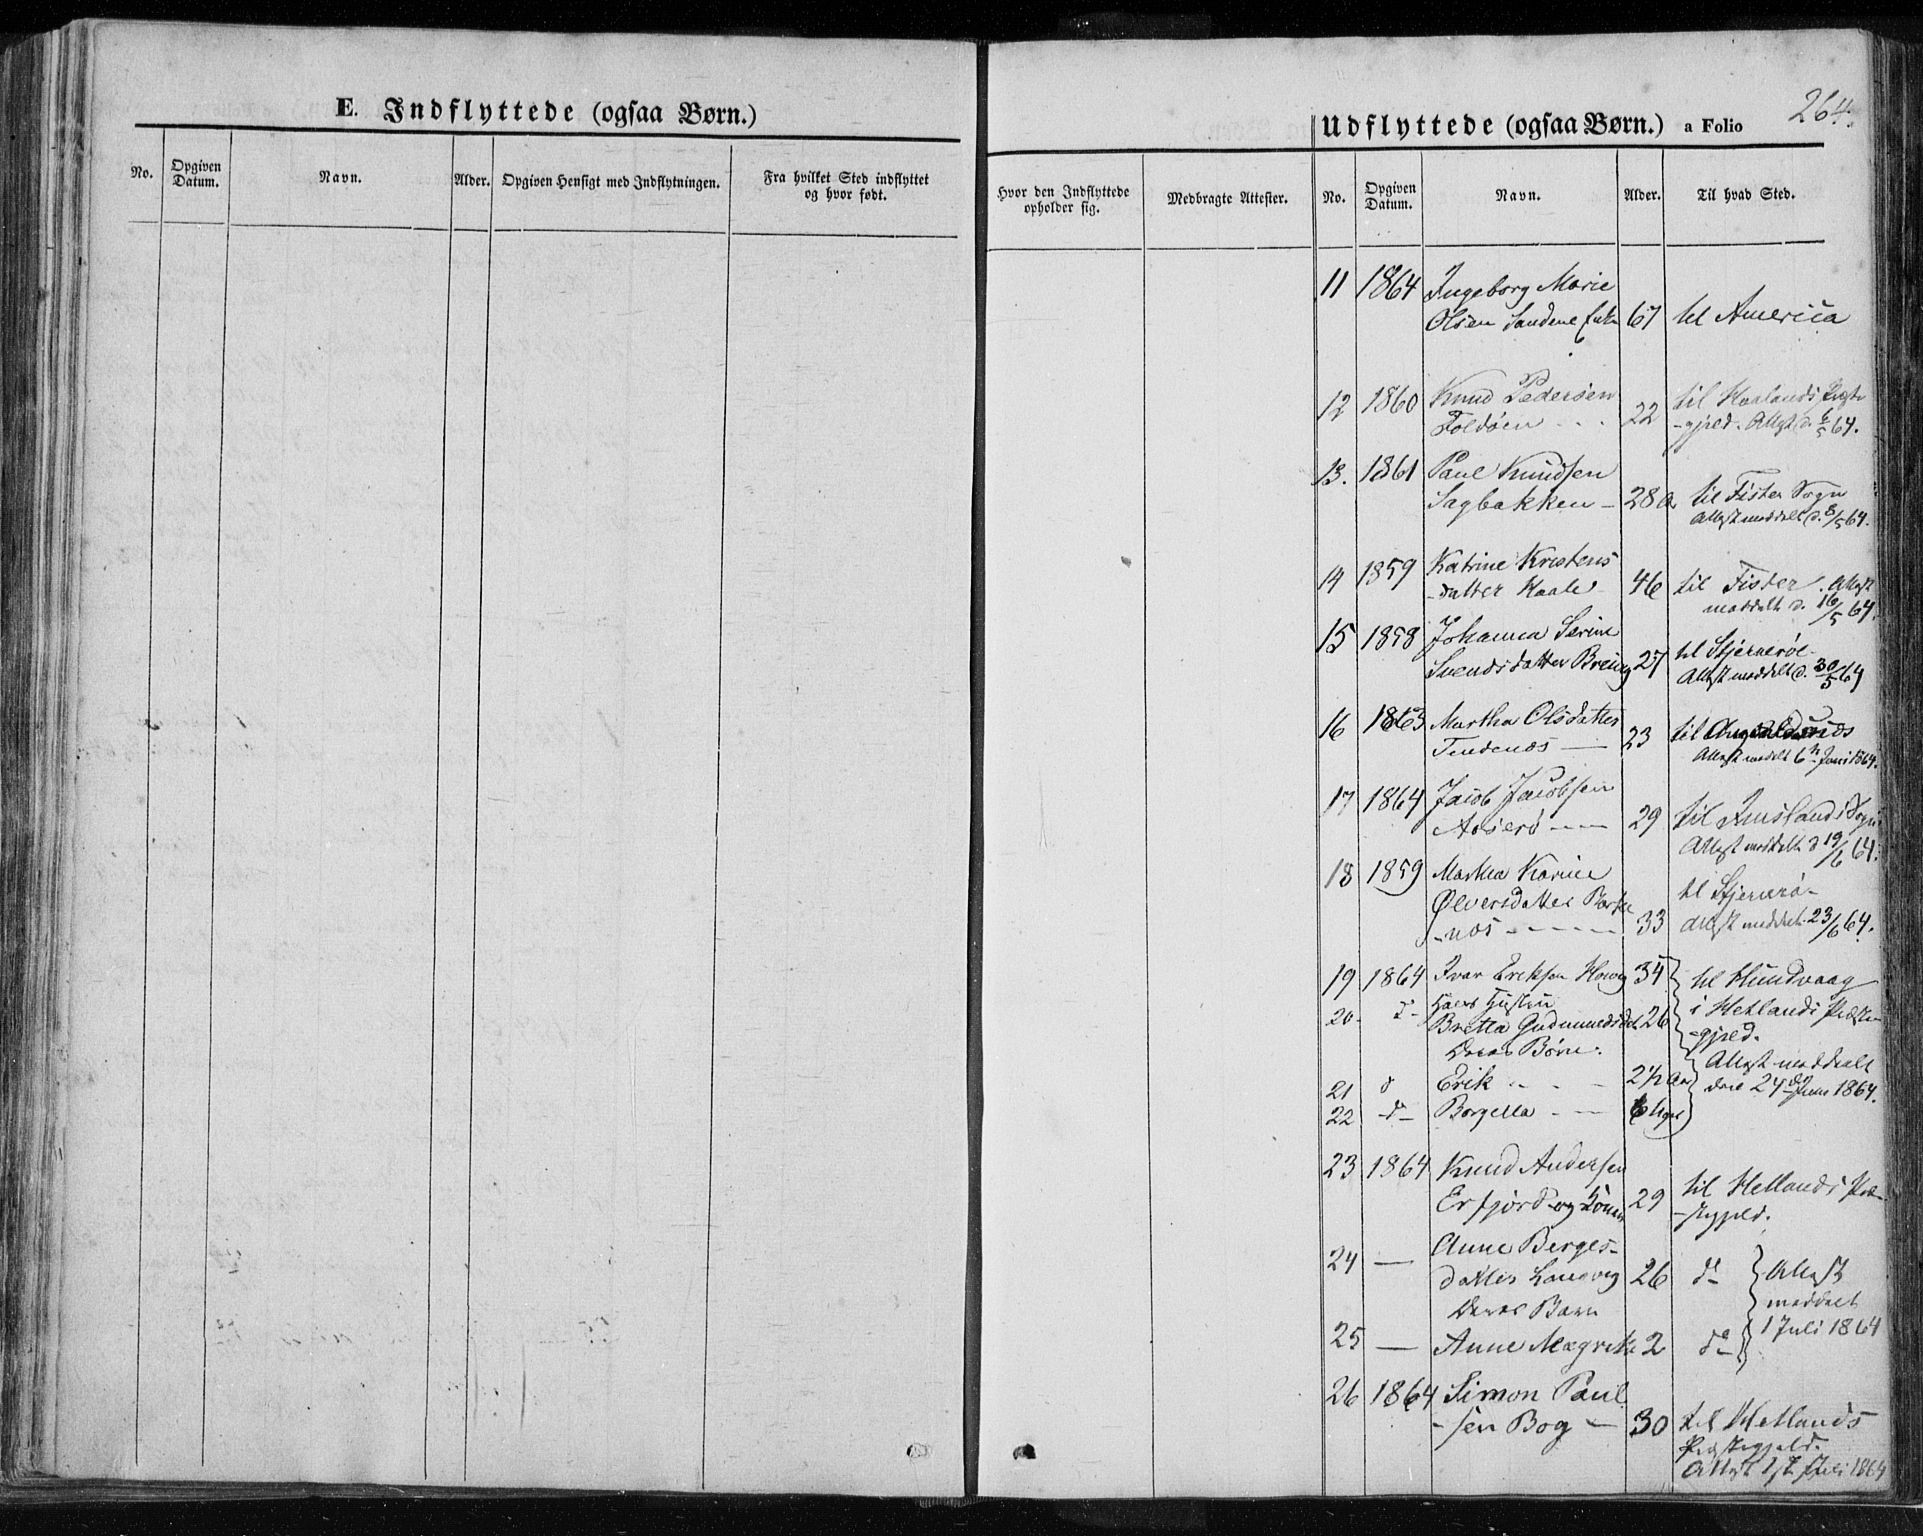 E. Indflyttede (ogsaa Børn.)
No.
Opgiven Datum.
Navn.
Alder.
Opgiven Hensigt med Indflytningen.
Fra hvilket Sted indflyttet
og hvor født.
264.
Udflyttede (ogsaa Børn.) a Folio
Hvor den Indflyttede
opholder sig.
Medbragte Attester.
No.
Opgiven Datum.
Navn.
Alder.
Til hvad Sted.
11 1864 Ingeborg Marie
Olsen Sandene Enke 67 til America
12 1860 Knud Pedersen til Haalands Præste
Foldöen 22 -gjeld. Attest d. 6/5 64.
13. 1861 Paul Knudsen
Sagbakken - 28 til Fister Sogn
Attest meddelt d. 8/5 64.
14 1859 Katrine Kristens
-datter Haale 46 til Fister. Attest
meddelt d. 16/5 64.
15 1858 Johanna Serine til Stjernerøe
Svendsdatter 27 Attest meddelt d. 30/5 64
16 1863 Martha Olsdatter
Tendenes 23 til
Attest meddelt 6te Juni 1864.
17 1864 Jacob Jacobsen
29 til Sogn
Attest meddelt d 19/6 64.
18 1859 Martha Karine til Stjernerö-
Ølversdatter
-nes 33 Attest meddelt 23/6 64.
19 1864 Ivar Eriksen 34 til Hundvaag
20. d- hans Hustru i Hetlands Præste-
Britta Gudmundsdat 26 -gjeld.
Deres Børn:
21 d Erik 2½ Aar Attest meddeelt
den 24de Juni 1864.
22 -d- Borgella 6 Uger
23 1864 Knud Andersen til Hetlands Præ-
Erfjord og Kone 29 -stegjeld.
24 — Anne Berges-
datter Langvig 26 do Attest
Deres Barn meddelt
25 — Anne Margrete 2 do 1 Juli 1864
26 1864 Simon Paul
-sen Bog - 30 til Hetlands
Præstegjeld.
Attest 1ste Juli 1864